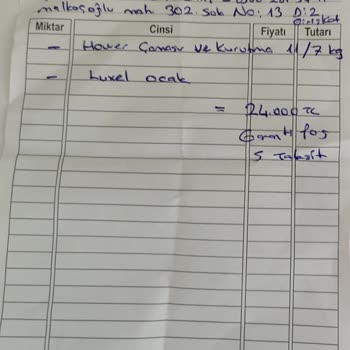 malkoçoğlu mah 302. sok No: 13 D:2
Giriş kat
Miktar Cinsi Fiyatı Tutarı
- Hower Çamaşır ve Kurutma 11/7 kg
- Luxel ocak
= 24.000 TL
Garanti Pos
5 Taksit